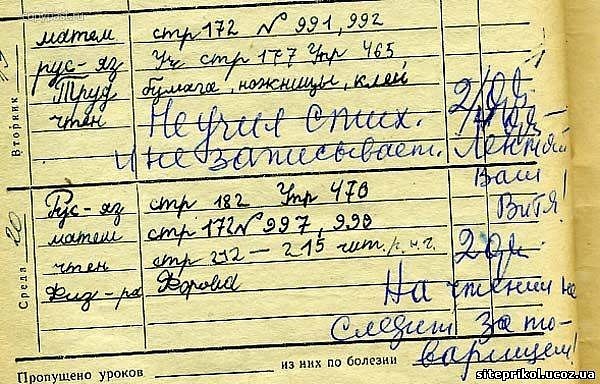 матем стр 172 № 991, 992
рус-яз Уч стр 177 Упр 465
Труд бумага, ножницы, клей
Вторник
чтен Не учил стих. 2/два
и не записывает. Лентяй
Ваш
Витя!
Рус-яз стр 182 Упр 470
матем стр 172 № 997, 998
чтен стр 212 – 215 чит.
Среда 20
Физ-ра Форма
На чтении не
следит за то-
варищем!
Пропущено уроков из них по болезни
siteprikol.ucoz.ua